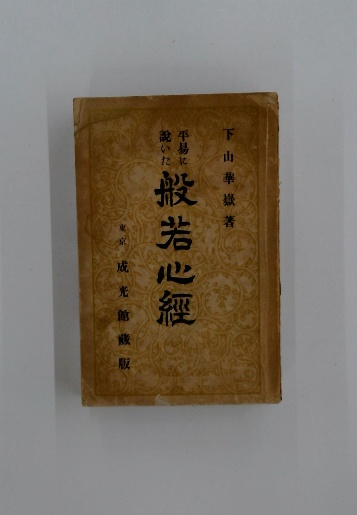 下山華嶽著
平易に
說いた
般若心經
東京 成光館藏版